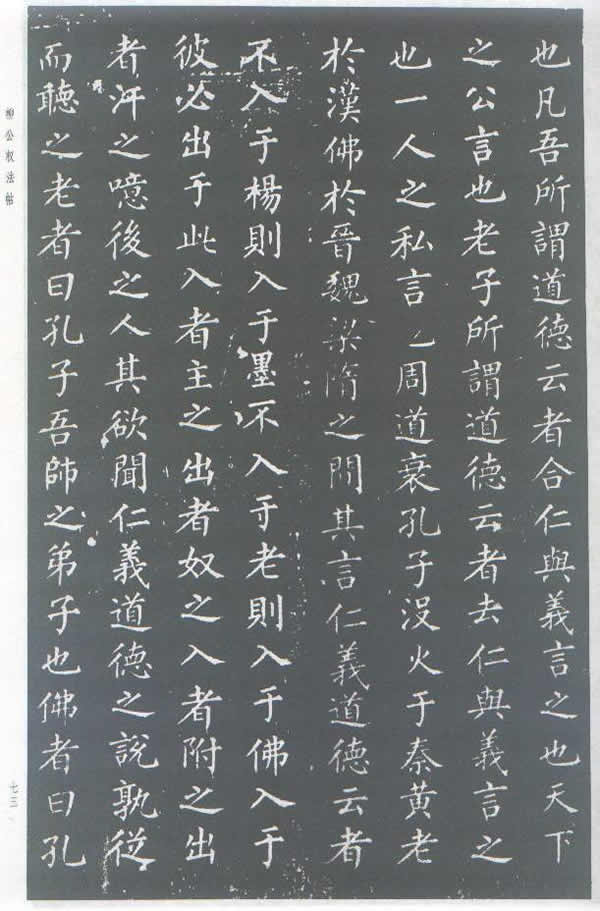 也凡吾所謂道德云者合仁與義言之也天下
之公言也老子所謂道德云者去仁與義言之
也一人之私言也周道衰孔子没火于秦黄老
於漢佛於晉魏梁隋之間其言仁義道德云者
不入于楊則入于墨不入于老則入于佛入于
彼必出于此入者主之出者奴之入者附之出
者汙之噫後之人其欲聞仁義道德之說孰從
而聽之老者曰孔子吾師之弟子也佛者曰孔
柳公权法帖
七三